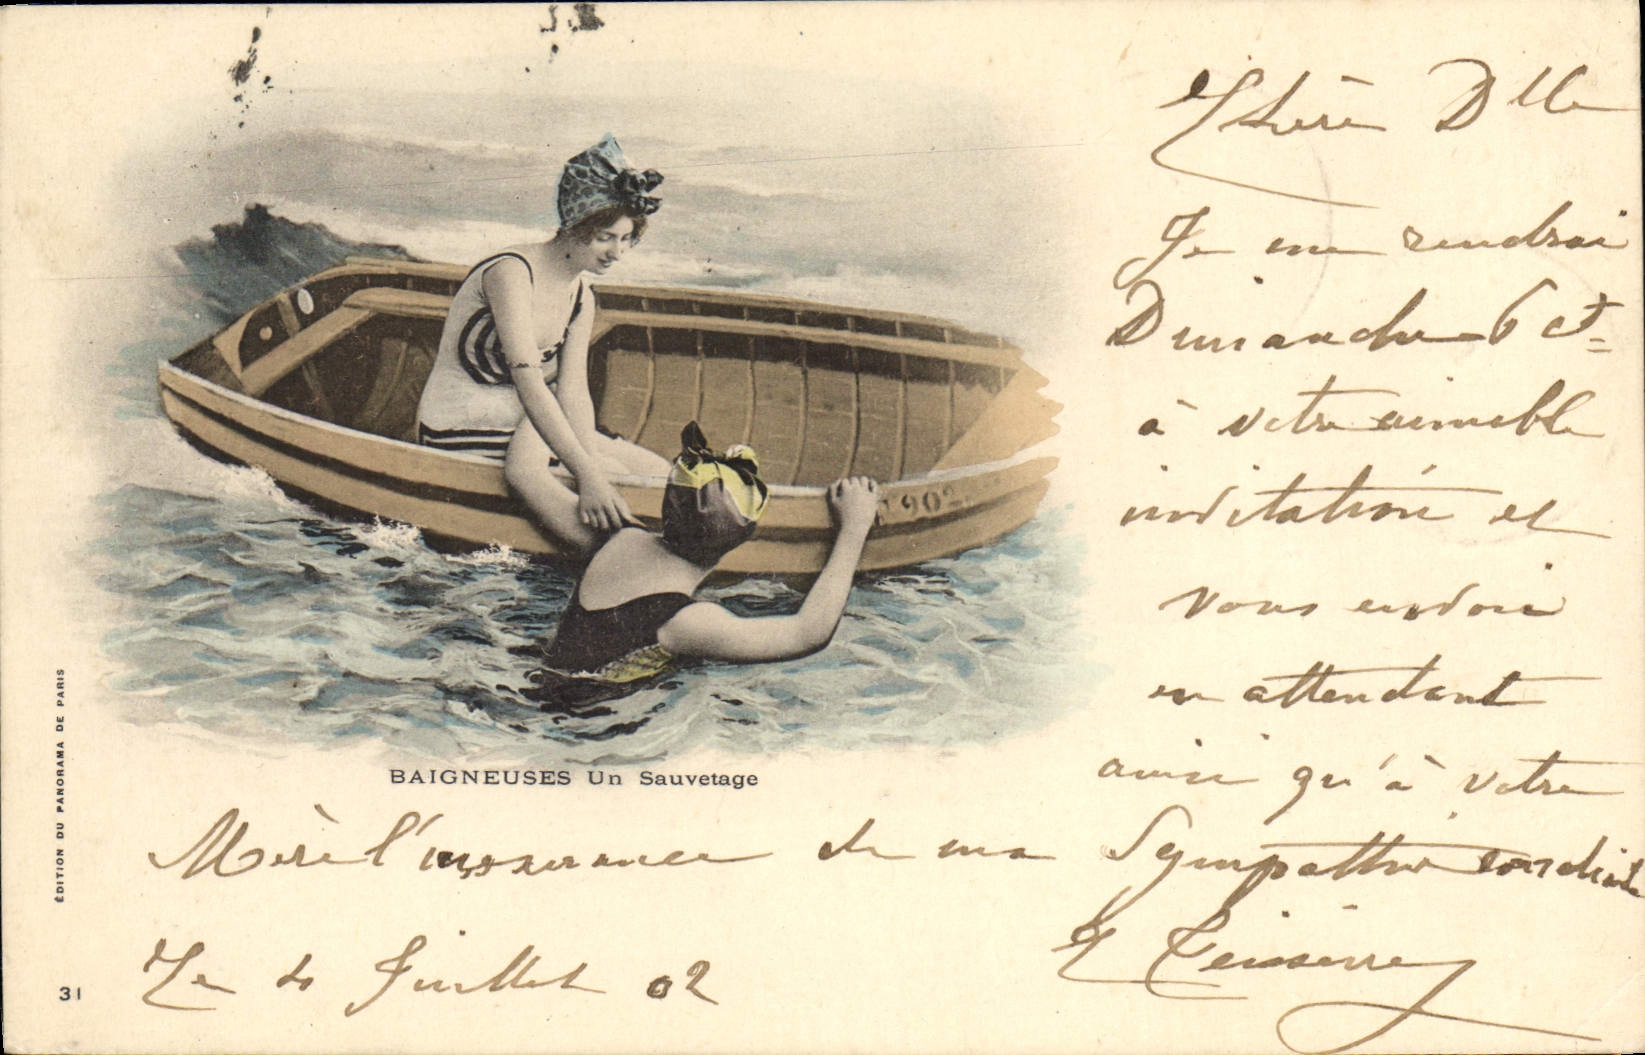 Chère Dlle
Je me rendrai
Dimanche 6 ct
à votre aimable
invitation et
vous envoie
en attendant
ainsi qu'à votre
Mère l'assurance de ma Sympathie cordiale
Le 4 Juillet 02
E Teisseire
F 902
BAIGNEUSES Un Sauvetage
ÉDITION DU PANORAMA DE PARIS
31